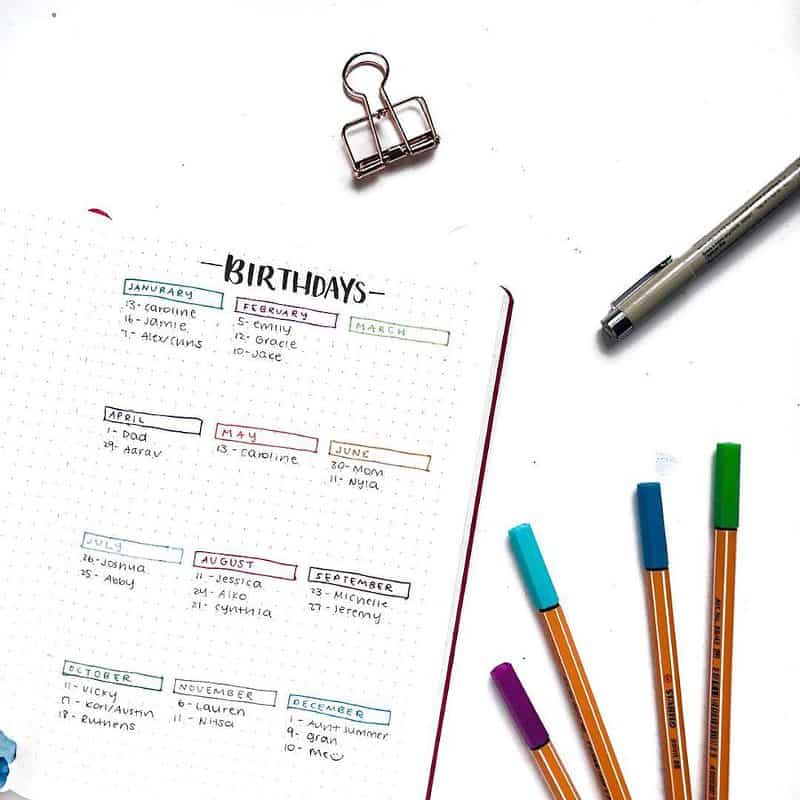 BIRTHDAYS
JANURARY
13- caroline
16- Jamie
7- Alex/Chris
FEBRUARY
5- emily
12- Gracie
10- Jake
MARCH
APRIL
1- Dad
29- Aarav
MAY
13- caroline
JUNE
30- Mom
11- Nyla
JULY
26- Joshua
25- Abby
AUGUST
11- Jessica
24- Aiko
21- cynthia
SEPTEMBER
23- Michelle
27- Jeremy
OCTOBER
11- Vicky
17- Kori/Austin
18- Ruthens
NOVEMBER
6- Lauren
11- Nitsa
DECEMBER
1- Aunt summer
9- gran
10- Me
STABILO